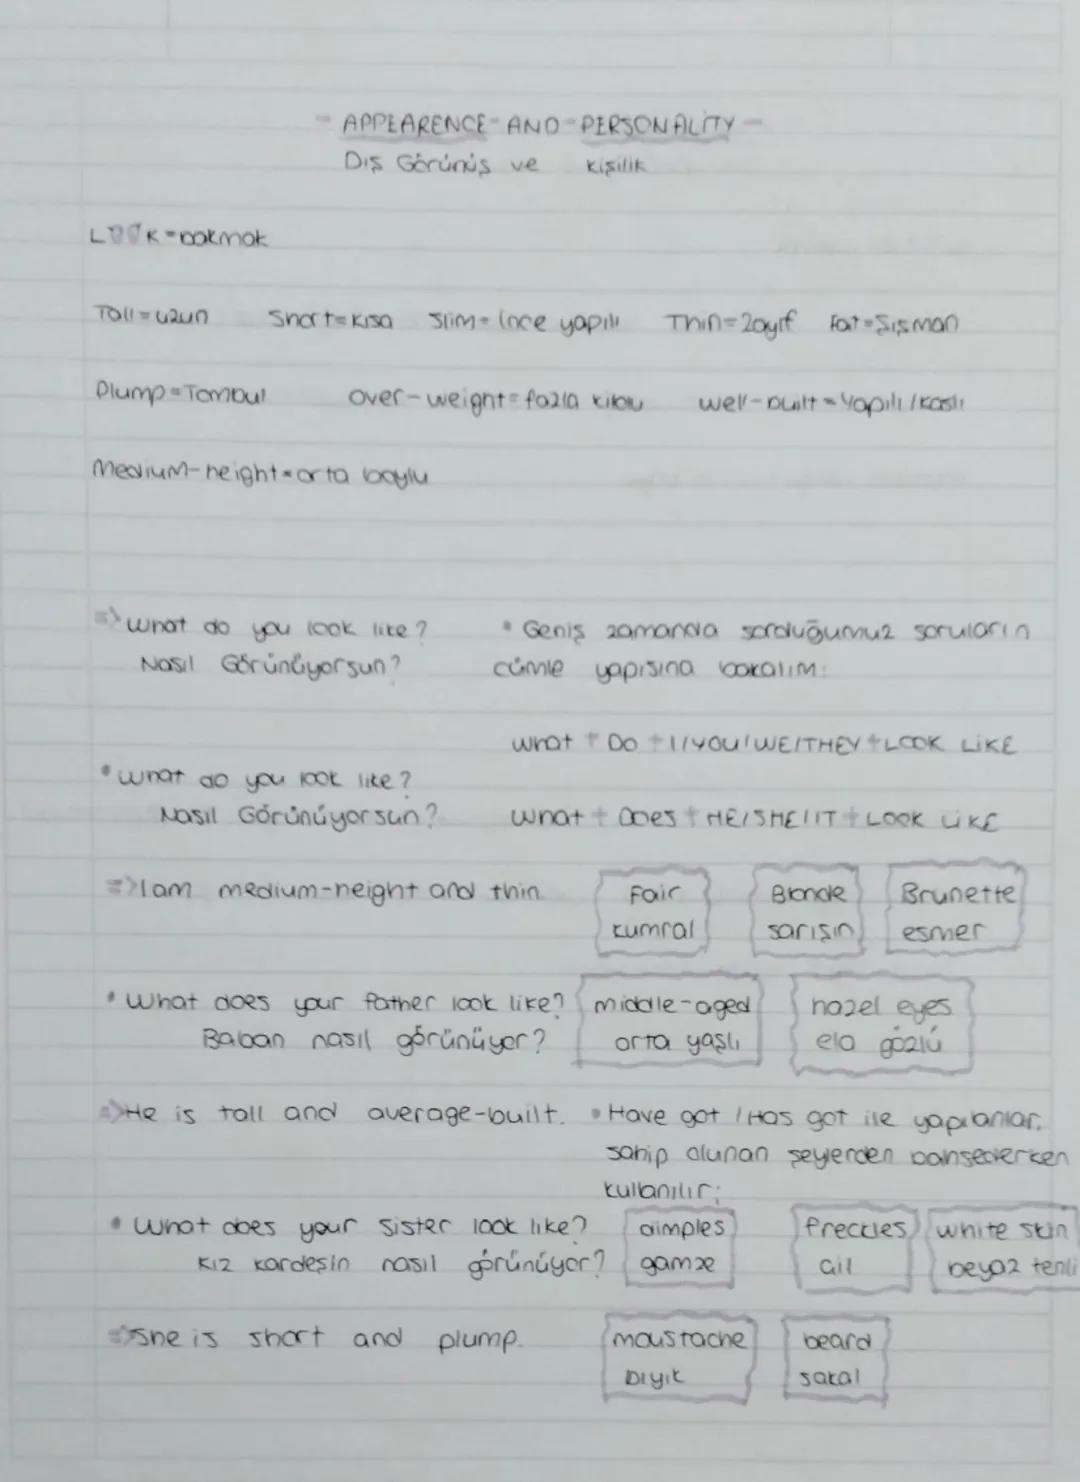 - APPEARENCE - AND - PERSONALİTY -
Dış Görünüş ve kişilik
LOOK = bakmak
Tall = uzun Short = kısa Slim = ince yapılı Thin = zayıf Fat = Şişman
Plump = Tombul over-weight = fazla kilolu well-built = Yapılı / kaslı
Medium-height = orta boylu
=> What do you look like?
Nasıl Görünüyorsun?
• Geniş zamanda sorduğumuz soruların
cümle yapısına bakalım:
What + Do + I/YOU/WE/THEY + LOOK LİKE
• What do you look like?
Nasıl Görünüyorsun?
What + Does + HE/SHE/IT + LOOK LİKE
=> I am medium-height and thin.
Fair Blonde Brunette
kumral sarışın esmer
• What does your father look like?
Baban nasıl görünüyor?
middle-aged hazel eyes
orta yaşlı ela gözlü
=> He is tall and average-built.
• Have got / Has got ile yapılanlar.
sahip olunan şeylerden bahsederken
kullanılır:
• What does your sister look like?
Kız kardeşin nasıl görünüyor?
dimples freckles white skin
gamze çil beyaz tenli
=> She is short and plump.
moustache beard
bıyık sakal